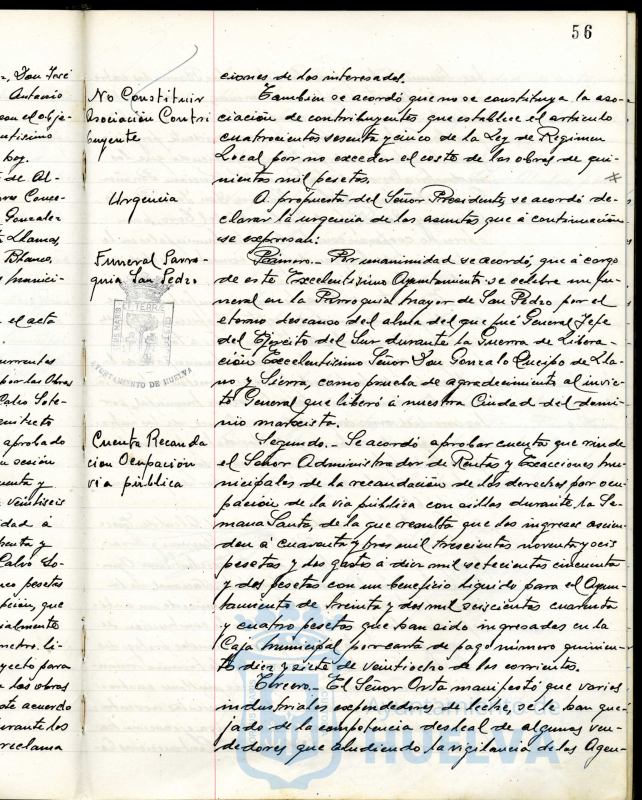 56
z, Don José
Antonio
con el obje-
ntisimo
hoy.
de Al-
Gonzalez
Llamas,
Blanco,
el acta
por las Obras
Calvo Sote-
aprobado
sesión
veintiseis
idad á
Calvo So-
pesetas
que
ialmente
yecto para
las obras
acuerdo
urante los
reclama
No Constituir
Asociación Contri
buyente
Urgencia
Funeral Parro-
quia San Pedro
AYUNTAMIENTO DE HUELVA
Cuenta Recauda
cion Ocupación
via pública
ciones de los interesados.
Tambien se acordó que no se constituya la aso-
ciación de contribuyentes que establece el articulo
cuatrocientos sesenta y cinco de la Ley de Regimen
Local por no exceder el coste de las obras de qui-
nientas mil pesetas.
A propuesta del Señor Presidente, se acordó de-
clarar la urgencia de los asuntos que á continuación
se expresan:
Primero.- Por unanimidad se acordó, que á cargo
de este Excelentisimo Ayuntamiento se celebre un fu-
neral en la Parroquial mayor de San Pedro por el
eterno descanso del alma del que fué General Jefe
del Ejército del Sur durante la Guerra de Libera-
ción Excelentisimo Señor Don Gonzalo Queipo de Lla-
no y Sierra, como prueba de agradecimiento al invic-
to General que liberó á nuestra Ciudad del domi-
nio marxista.
Segundo.- Se acordó aprobar cuenta que rinde
el Señor Administrador de Rentas y Exacciones mu-
nicipales de la recaudación de los derechos por ocu-
pación de la via pública con sillas durante la Se-
mana Santa, de la que resulta que los ingresos ascien-
den á cuarenta y tres mil trescientas noventa y seis
pesetas y los gastos á diez mil setecientas cincuenta
y dos pesetas con un beneficio liquido para el Ayun-
tamiento de treinta y dos mil seiscientas cuarenta
y cuatro pesetas que han sido ingresadas en la
Caja municipal por carta de pago número quinien-
to diez y siete de veintiocho de los corrientes.
Tercero.- El Señor Orta manifestó que varios
industriales expendedores de leche, se le han que-
jado de la competencia desleal de algunos ven-
dedores que aludiendo la vigilancia de los Agen-
Ayuntamiento de
HUELVA